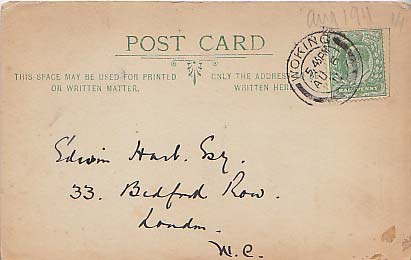 POST CARD
THIS SPACE MAY BE USED FOR PRINTED
OR WRITTEN MATTER.
ONLY THE ADDRESS
WRITTEN HERE
WOKING
AU
HALFPENNY
Edwin Hart. Esq.
33. Bedford Row.
London.
W.C.